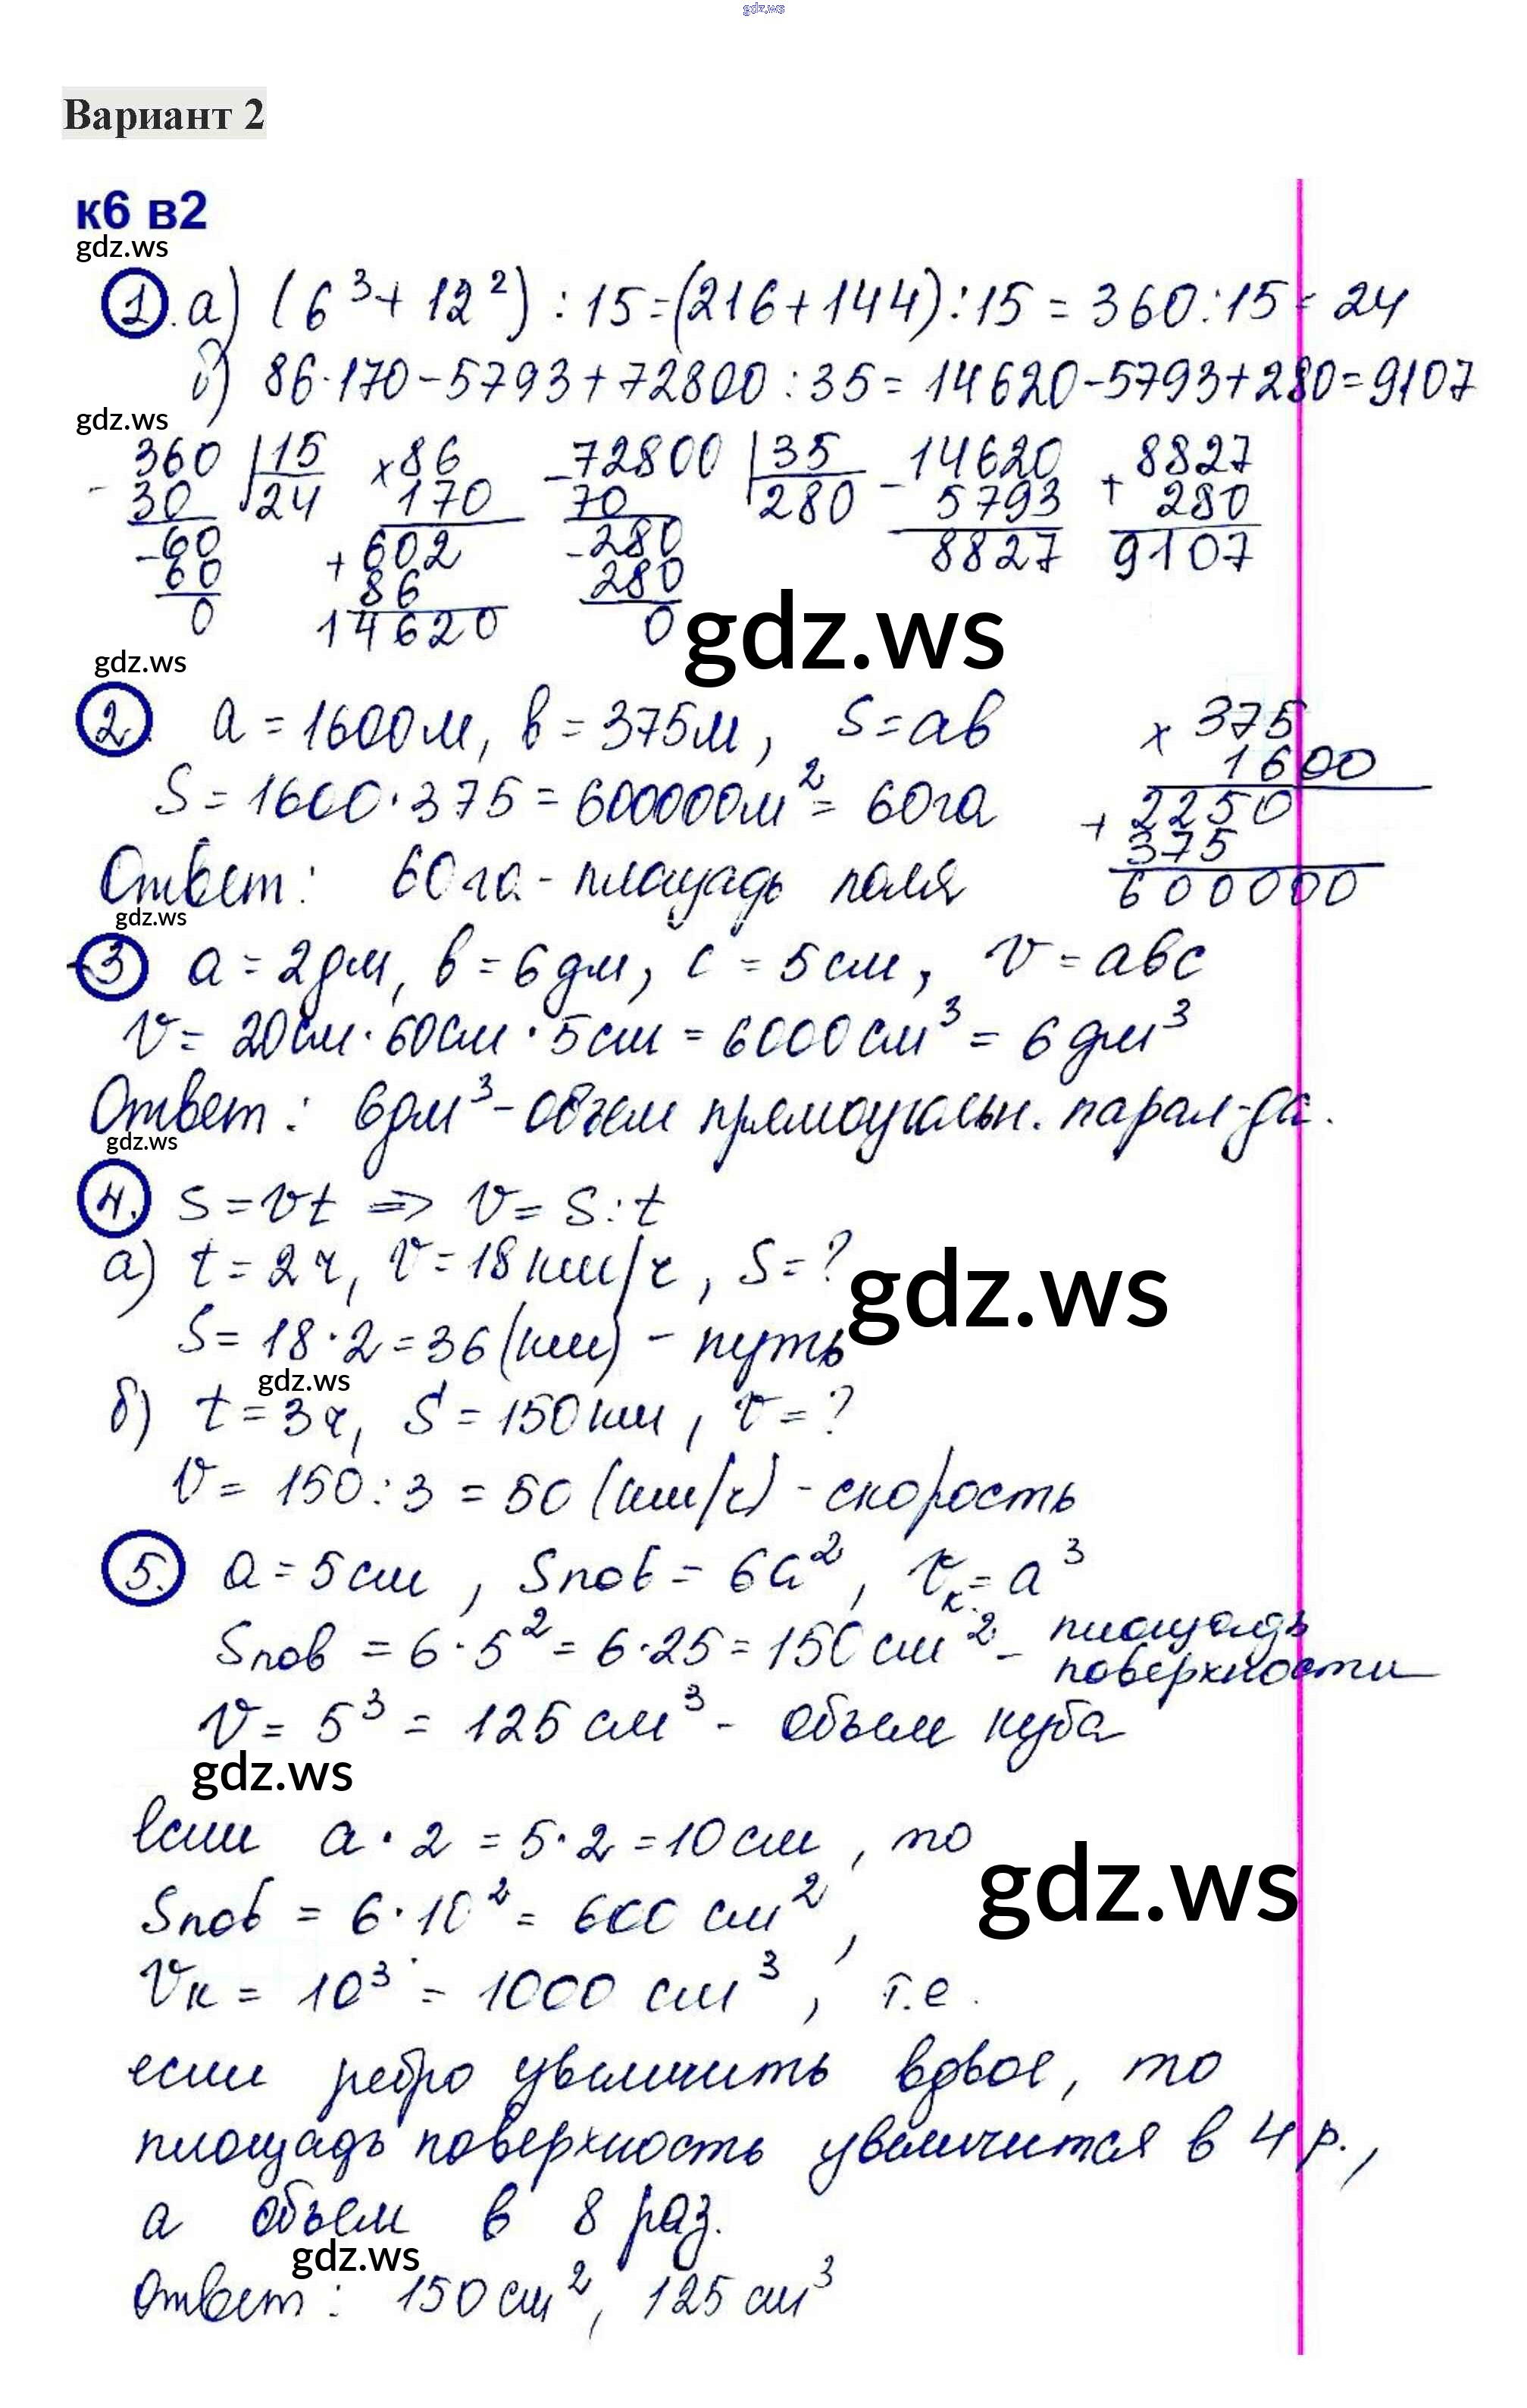 gdz.ws
Вариант 2
к6 в2
gdz.ws
1. а) (6³ + 12²) : 15 = (216 + 144) : 15 = 360 : 15 = 24
б) 86 · 170 - 5793 + 72800 : 35 = 14620 - 5793 + 280 = 9107
gdz.ws
- 360 | 15 × 86 - 72800 | 35 - 14620 + 8827
30 24 170 70 280 5793 280
- 60 + 602 - 280 8827 9107
60 86 280
0 14620 0
gdz.ws
gdz.ws
2. a = 1600 м, в = 375 м, S = ab × 375
1600
S = 1600 · 375 = 600000 м² = 60 га + 2250
375
Ответ: 60 га - площадь поля 600000
gdz.ws
3 a = 2 дм, в = 6 дм, с = 5 см, V = abc
V = 20 см · 60 см · 5 см = 6000 см³ = 6 дм³
Ответ: 6 дм³ - объем прямоугольн. парал-да.
gdz.ws
4. S = vt => v = S : t
а) t = 2 ч, v = 18 км/ч, S = ?
gdz.ws
S = 18 · 2 = 36 (км) - путь
gdz.ws
б) t = 3 ч, S = 150 км, v = ?
v = 150 : 3 = 50 (км/ч) - скорость
5. a = 5 см, Sпов = 6a², Vк. = a³
Sпов = 6 · 5² = 6 · 25 = 150 см² - площадь
поверхности
V = 5³ = 125 см³ - объем куба
gdz.ws
если a · 2 = 5 · 2 = 10 см, то
gdz.ws
Sпов = 6 · 10² = 600 см²,
Vк = 10³ = 1000 см³, т.е.
если ребро увеличить вдвое, то
площадь поверхность увеличится в 4 р.,
а объем в 8 раз.
gdz.ws
Ответ: 150 см², 125 см³